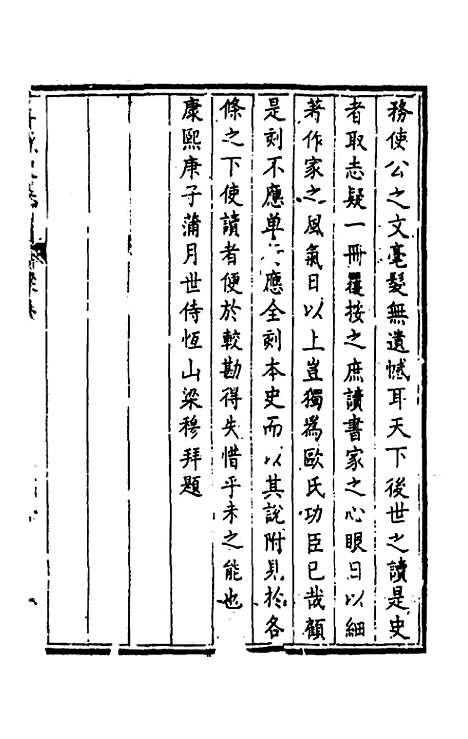 務使公之文毫髮無遺憾耳天下後世之讀是史
者取志疑一冊覆按之庶讀書家之心眼日以細
著作家之風氣日以上豈獨為歐氏功臣已哉顧
是刻不應单行應全刻本史而以其說附見於各
條之下使讀者便於較勘得失惜乎未之能也
康熙庚子蒲月世侍恆山梁穆拜題